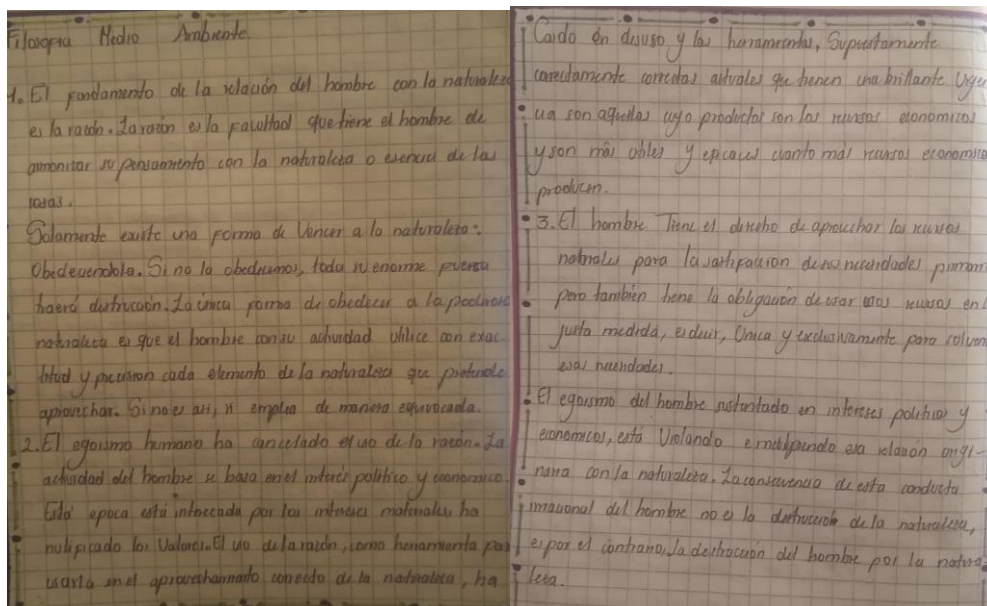 Filosofia Medio Ambiente
1. El fundamento de la relación del hombre con la naturaleza
es la razón. La razón es la Facultad que tiene el hombre de
armonizar su pensamiento con la naturaleza o esencia de las
cosas.
Solamente existe una forma de Vencer a la naturaleza:
Obedeciendola. Si no la obedecemos, toda su enorme fuerza
haerá destrucción. La única forma de obedecer a la poderosa
naturaleza es que el hombre con su actividad utilice con exac-
titud y precisión cada elemento de la naturaleza que pretende
aprovechar. Si no es así, se emplea de manera equivocada.
2. El egoismo humano ha cancelado el uso de la razón. La
actividad del hombre se basa en el interés político y economico.
Esta epoca está intoxicada por los intereses materiales, ha
nulificado los Valores. El uso de la razón, como herramienta para
usarla en el aprovechamiento correcto de la naturaleza, ha
Caido en desuso y las herramientas, Supuestamente
correctas actuales que tienen una brillante Urgen
cia son aquellas cuyo productos son los recursos economicos
y son más utiles y eficaces cuanto más recursos economico
producen.
3. El hombre Tiene el derecho de aprovechar los recursos
naturales para la satisfacion de sus necesidades
pero también tiene la obligación de usar esos recursos en
justa medida, es decir, Única y exclusivamente para
esas necesidades.
El egoismo del hombre sustentado en intereses politicos y
economicos, está Violando e incumpliendo esa relación origi-
naria con la naturaleza. La consecuencia de esta conducta
irracional del hombre no es la destrucción de la naturaleza,
es por el contrario, la destrucción del hombre por la natura
leza.